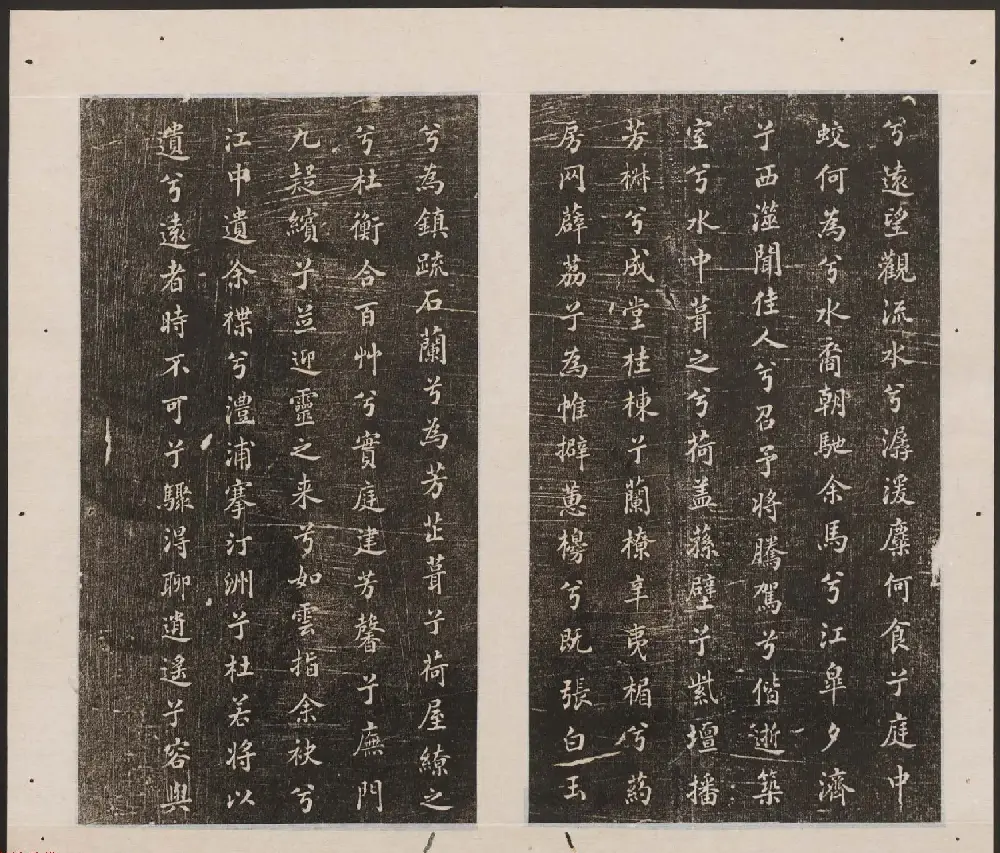 兮遠望觀流水兮潺湲麋何食兮庭中
蛟何為兮水裔朝馳余馬兮江皋夕濟
兮西澨聞佳人兮召予將騰駕兮偕逝築
室兮水中葺之兮荷盖蓀壁兮紫壇播
芳椒兮成堂桂棟兮蘭橑辛夷楣兮葯
房网薜荔兮為帷擗蕙櫋兮既張白玉
兮為鎮疏石蘭兮為芳芷葺兮荷屋繚之
兮杜衡合百艸兮實庭建芳馨兮廡門
九嶷繽兮並迎靈之来兮如雲捐余袂兮
江中遺余褋兮澧浦搴汀洲兮杜若將以
遺兮遠者時不可兮驟得聊逍遥兮容與